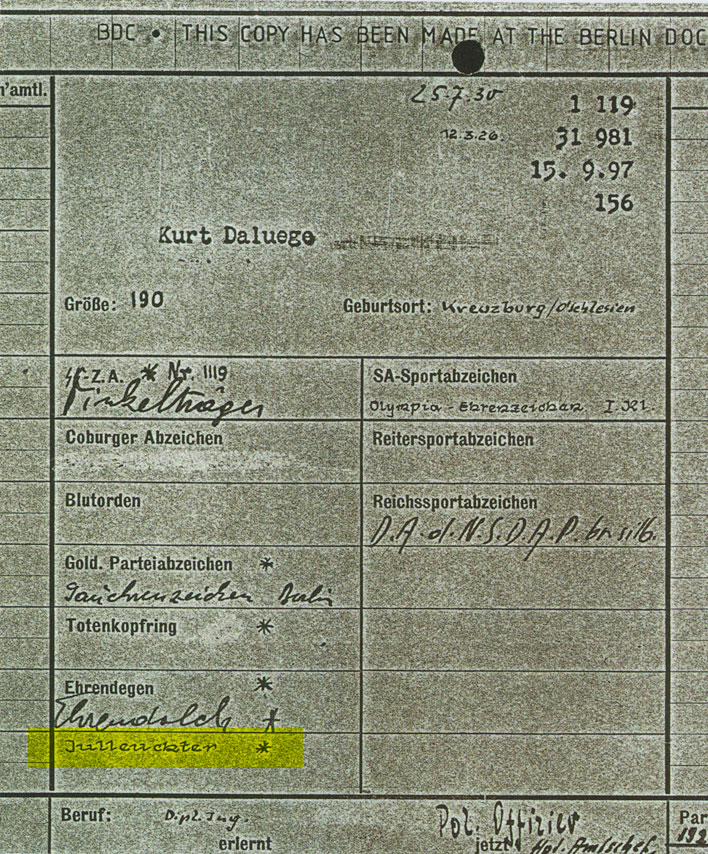 BDC • THIS COPY HAS BEEN MADE AT THE BERLIN DOC
n'amtl.
25.7.30
1 119
12.3.26.
31 981
15. 9.97
156
Kurt Daluege
Größe: 190
Geburtsort: Kreuzburg/O'schlesien
-Z.A. * Nr. 1119
Winkelträger
SA-Sportabzeichen
Olympia-Ehrenzeichen I.Kl.
Coburger Abzeichen
Reitersportabzeichen
Blutorden
Reichssportabzeichen
D.A.d.N.S.D.A.P. br. silb.
Gold. Parteiabzeichen *
Gauehrenzeichen Berlin
Totenkopfring *
Ehrendegen *
Ehrendolch *
Julleuchter *
Beruf: Dipl. Ing.
erlernt
Pol. Offizier
jetzt
Par
192